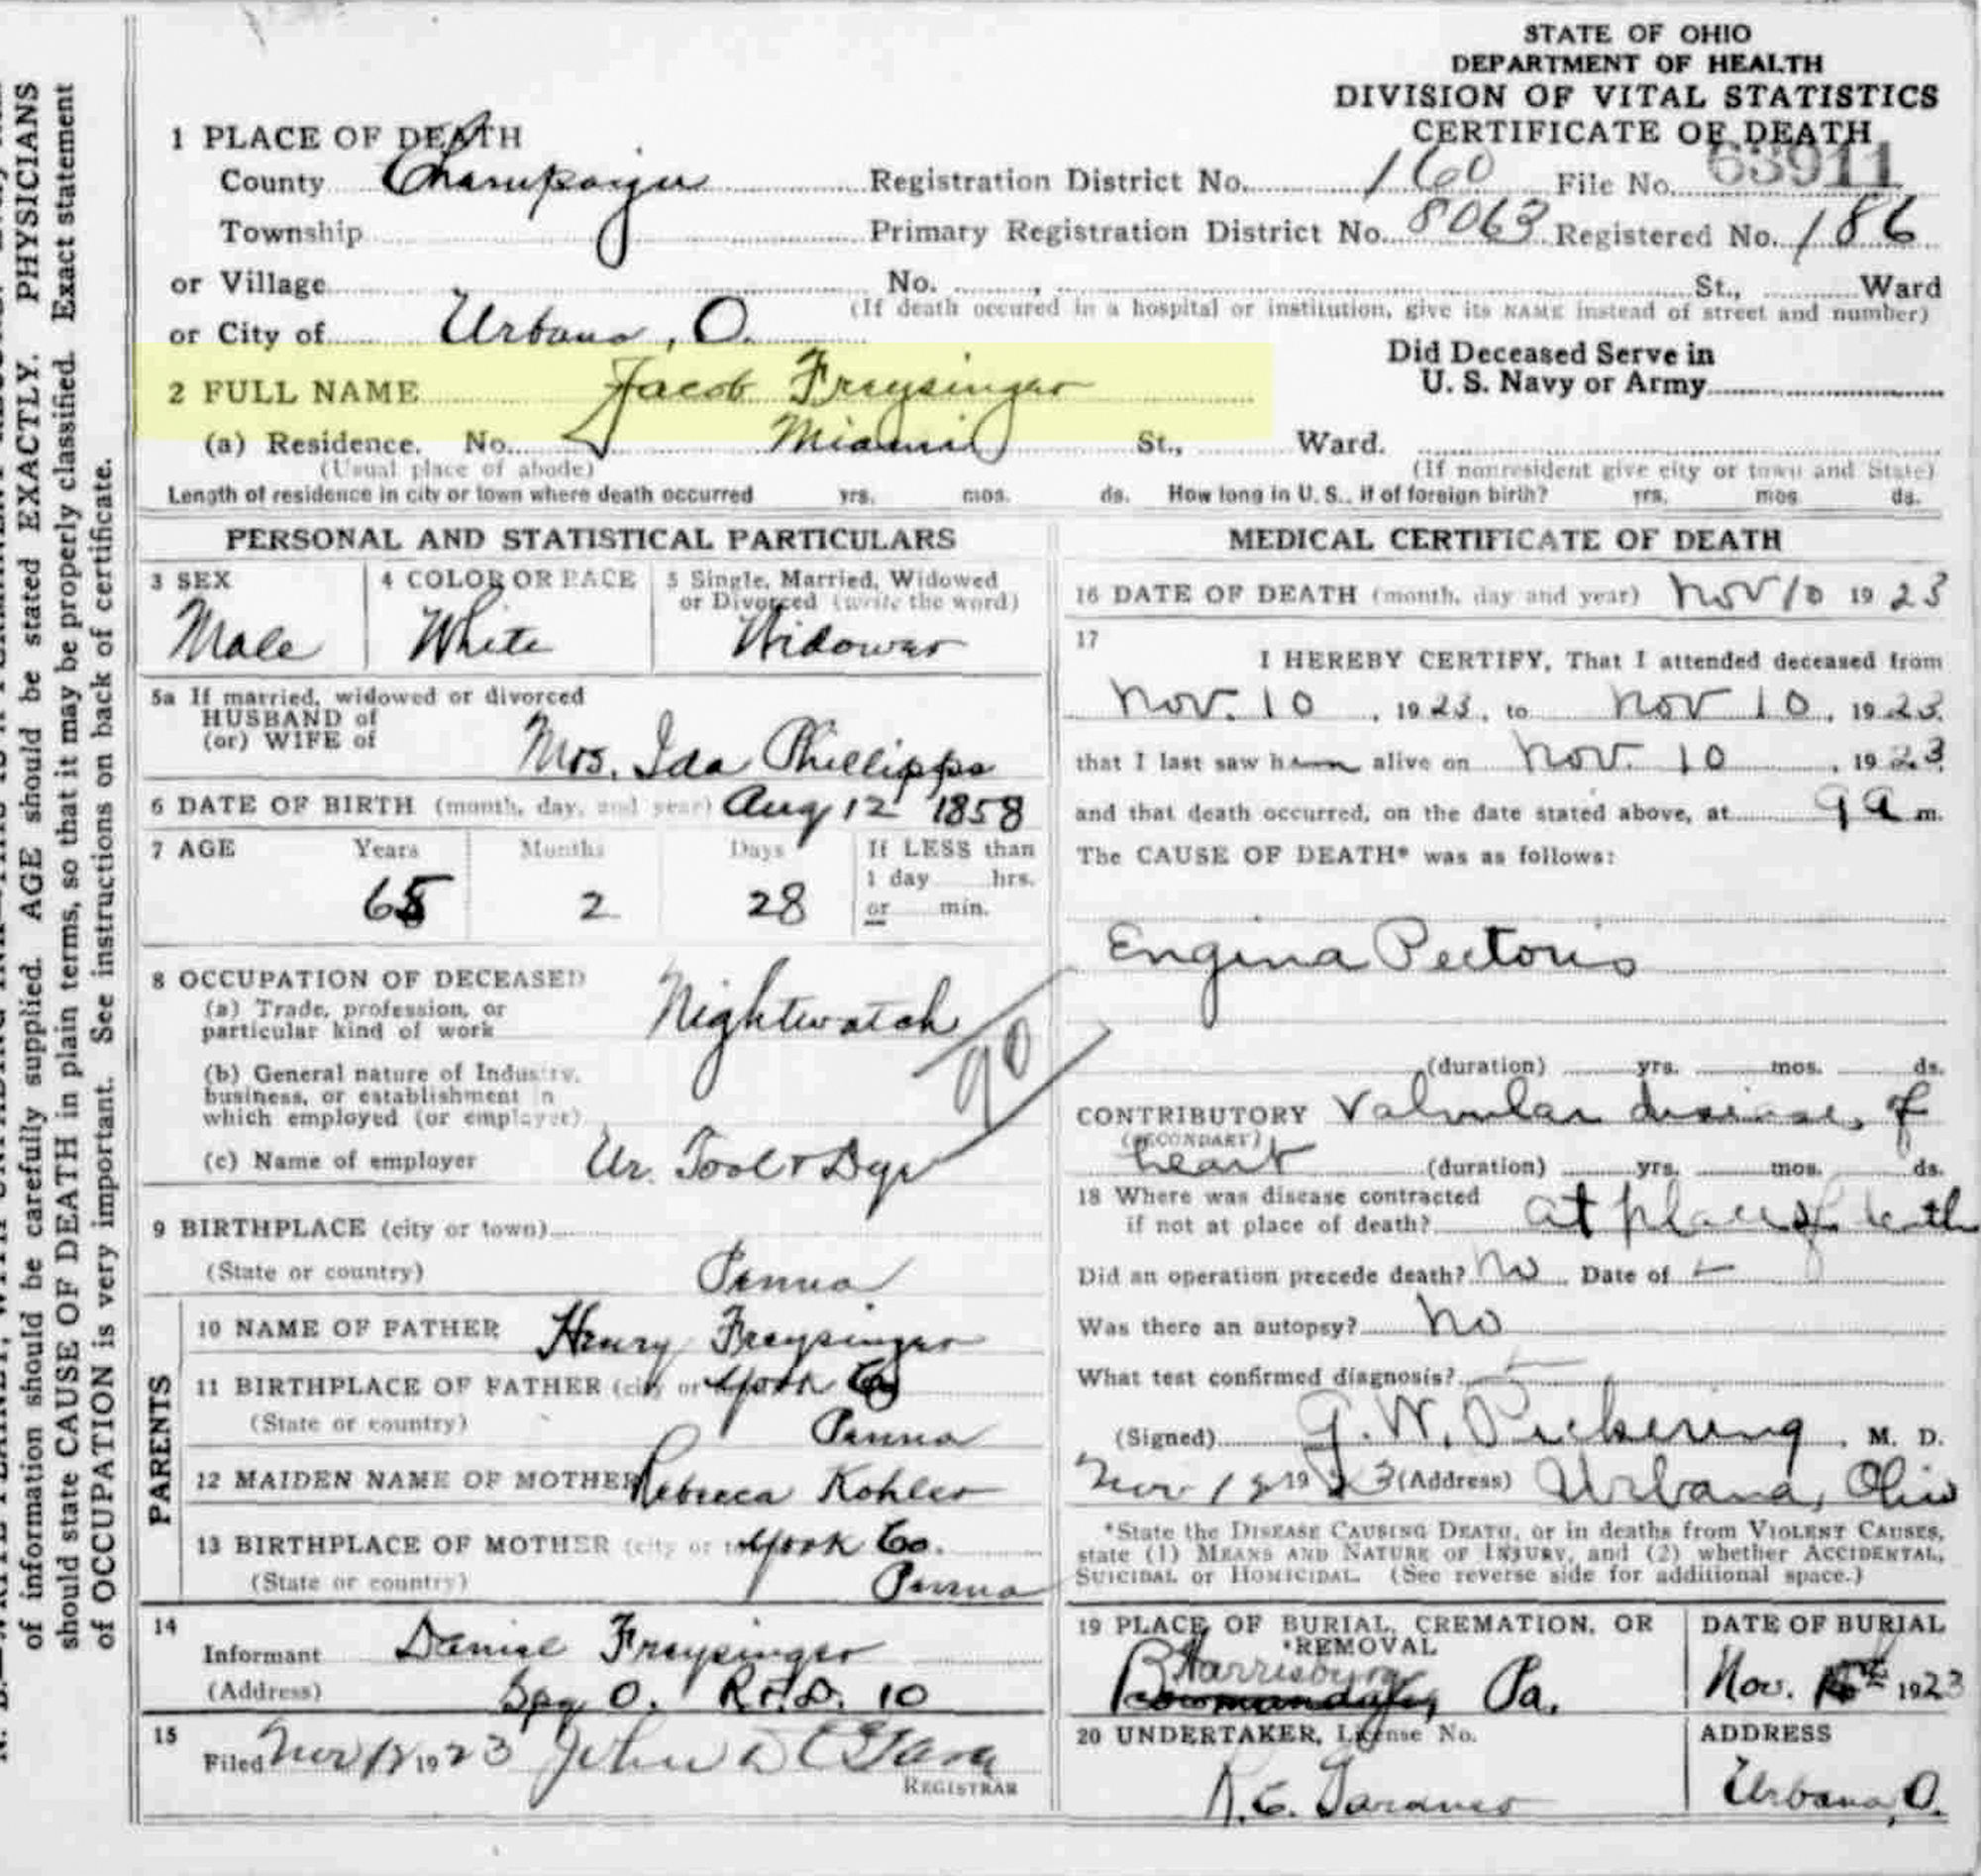 STATE OF OHIO
DEPARTMENT OF HEALTH
DIVISION OF VITAL STATISTICS
CERTIFICATE OF DEATH
1 PLACE OF DEATH
County Champaign Registration District No. 160 File No. 63911
Township Primary Registration District No. 8063 Registered No. 186
or Village No. St., Ward
(If death occured in a hospital or institution, give its NAME instead of street and number)
or City of Urbana, O.
Did Deceased Serve in
U. S. Navy or Army
2 FULL NAME Jacob Freysinger
(a) Residence. No. Miami St., Ward.
(Usual place of abode) (If nonresident give city or town and State)
Length of residence in city or town where death occurred yrs. mos. ds. How long in U. S., if of foreign birth? yrs. mos ds.
PERSONAL AND STATISTICAL PARTICULARS
3 SEX
Male
4 COLOR OR RACE
White
5 Single, Married, Widowed
or Divorced (write the word)
Widower
5a If married, widowed or divorced
HUSBAND of
(or) WIFE of
Mrs. Ida Phillipps
6 DATE OF BIRTH (month, day, and year) Aug 12 1858
7 AGE Years Months Days If LESS than
1 day hrs.
65 2 28 or min.
8 OCCUPATION OF DECEASED
(a) Trade, profession, or
particular kind of work Nightwatch
90
(b) General nature of Industry,
business, or establishment in
which employed (or employer)
(c) Name of employer Ur. Tool &
9 BIRTHPLACE (city or town)
(State or country) Penna
PARENTS
10 NAME OF FATHER Henry Freysinger
11 BIRTHPLACE OF FATHER (city or York Co
(State or country) Penna
12 MAIDEN NAME OF MOTHER Rebecca Kohler
13 BIRTHPLACE OF MOTHER (city or to York Co.
(State or country) Penna
14
Informant Daniel Freysinger
(Address) Spg O. R.F.D. 10
15
Filed Nov 12 1923 John D
REGISTRAR
MEDICAL CERTIFICATE OF DEATH
16 DATE OF DEATH (month, day and year) Nov 10 1923
17
I HEREBY CERTIFY, That I attended deceased from
Nov. 10, 1923, to Nov 10, 1923.
that I last saw him alive on Nov. 10, 1923
and that death occurred, on the date stated above, at 9 a m.
The CAUSE OF DEATH* was as follows:
Engina Pectoris
(duration) yrs. mos. ds.
CONTRIBUTORY Valvular disease of
(SECONDARY)
heart (duration) yrs. mos. ds.
18 Where was disease contracted
if not at place of death? at place of death
Did an operation precede death? No Date of
Was there an autopsy? No
What test confirmed diagnosis?
(Signed) G. W. Pickering, M. D.
Nov 12 1923 (Address) Urbana, Ohio
*State the DISEASE CAUSING DEATH, or in deaths from VIOLENT CAUSES,
state (1) MEANS AND NATURE OF INJURY, and (2) whether ACCIDENTAL,
SUICIDAL or HOMICIDAL. (See reverse side for additional space.)
19 PLACE OF BURIAL, CREMATION, OR
REMOVAL
Harrisburg Pa.
DATE OF BURIAL
Nov. 1923
20 UNDERTAKER, License No.
R. E. Gardner
ADDRESS
Urbana, O.
of information should be carefully supplied. AGE should be stated EXACTLY. PHYSICIANS
should state CAUSE OF DEATH in plain terms, so that it may be properly classified. Exact statement
of OCCUPATION is very important. See instructions on back of certificate.